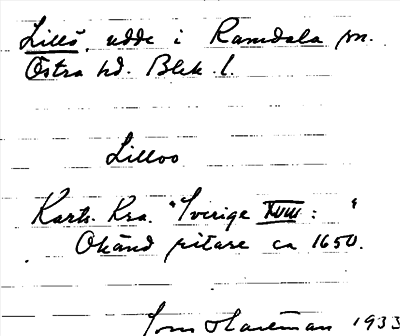 Lillö, udde i Ramdala sn.
Östra hd. Blek. l.
Lilloo
Kart. Kra. "Sverige XVIII: "
Okänd ritare ca 1650.
1933